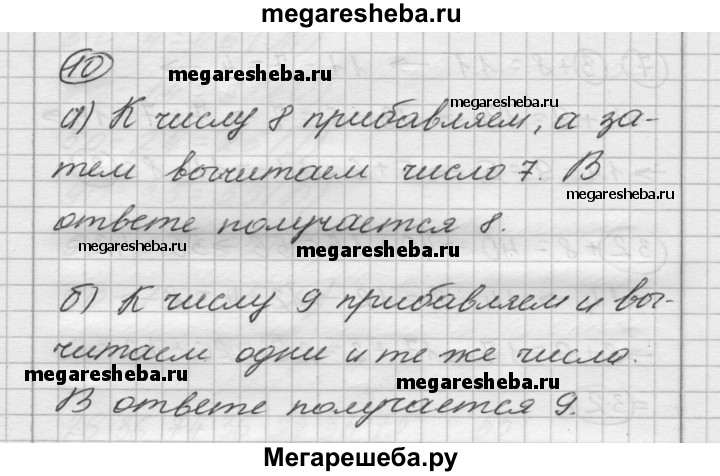 megaresheba.ru
10
megaresheba.ru
а) К числу 8 прибавляем, а за-
megaresheba.ru
тем вычитаем число 7. В
megaresheba.ru
ответе получается 8.
megaresheba.ru
megaresheba.ru
б) К числу 9 прибавляем и вы-
читаем одни и те же числа.
megaresheba.ru
megaresheba.ru
В ответе получается 9.
Мегарешеба.ру